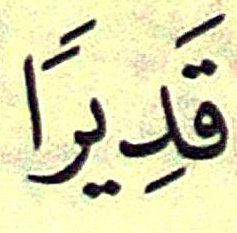 قَدِيرًا